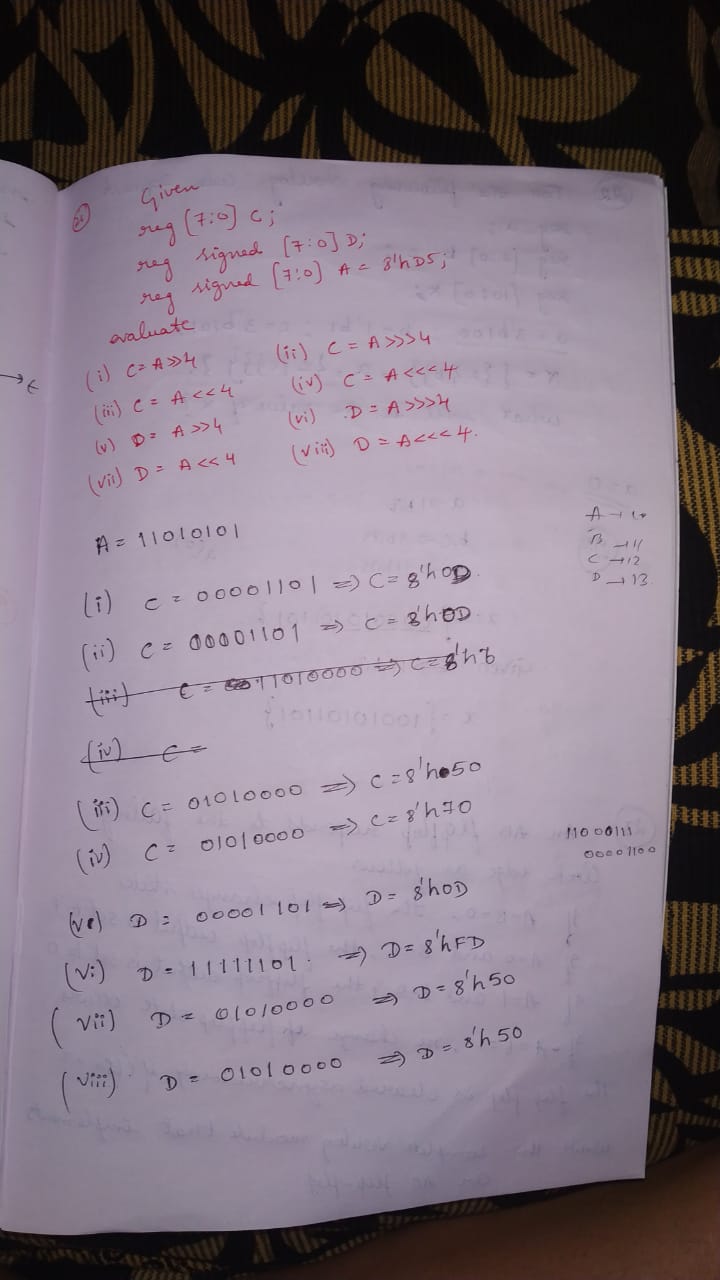 21
Given
reg [7:0] C;
reg signed [7:0] D;
reg signed [7:0] A = 8'hD5;
evaluate
(i) C = A >> 4 (ii) C = A >>> 4
(iii) C = A << 4 (iv) C = A <<< 4
(v) D = A >> 4 (vi) D = A >>> 4
(vii) D = A << 4 (viii) D = A <<< 4.
A = 11010101
A → 10
B → 11
C → 12
D → 13
(i) C = 00001101 ⇒ C = 8'h0D.
(ii) C = 00001101 ⇒ C = 8'h0D
(iii) C = 11010000 ⇒ C = 8'h
(iv) C =
(iii) C = 01010000 ⇒ C = 8'h50
(iv) C = 01010000 ⇒ C = 8'h70
11000111
00001100
(v) D = 00001101 ⇒ D = 8'h0D
(vi) D = 11111101. ⇒ D = 8'hFD
(vii) D = 01010000 ⇒ D = 8'h50
(viii) D = 01010000 ⇒ D = 8'h50